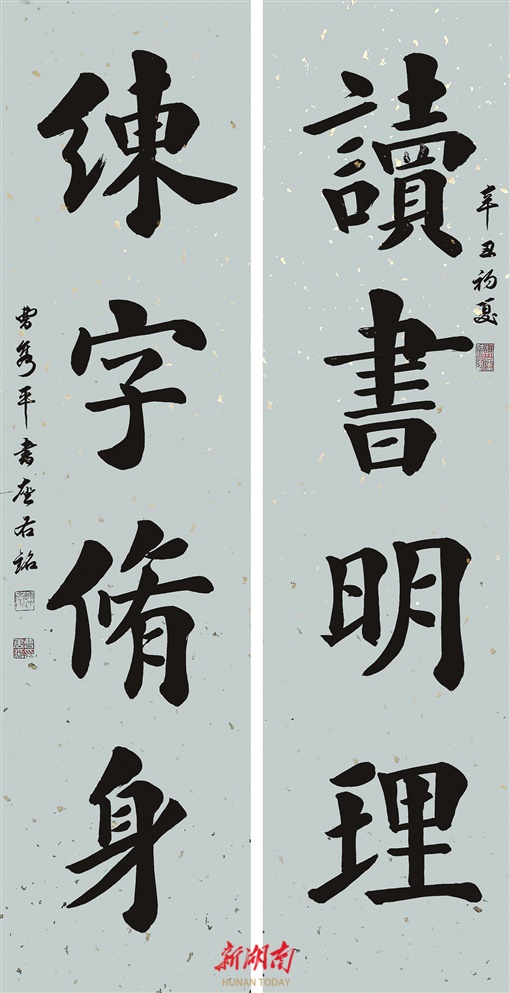 讀書明理
辛丑初夏
練字脩身
曹隽平書座右銘
新湖南
HUNAN TODAY